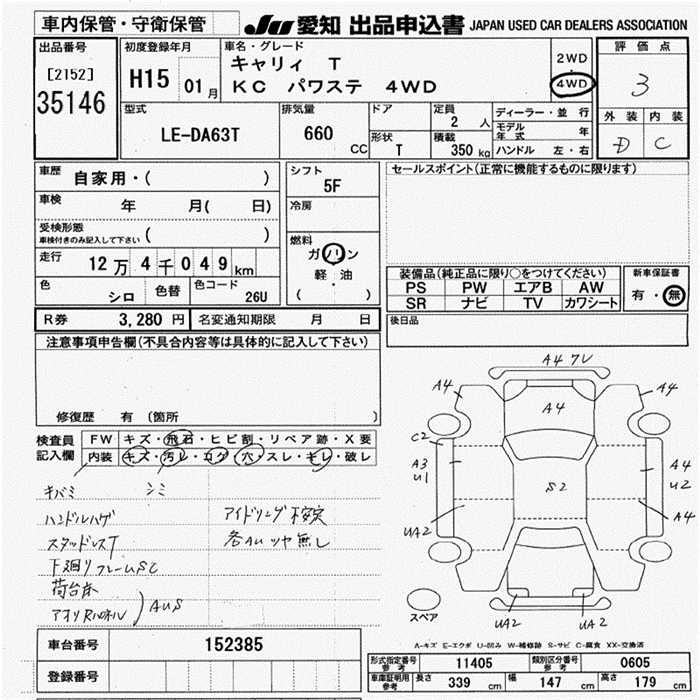 車内保管・守衛保管
JU 愛知 出品申込書 JAPAN USED CAR DEALERS ASSOCIATION
出品番号
[2152]
35146
初度登録年月
H15 01月
車名・グレード
キャリィ T
KC パワステ 4WD
2WD
4WD
評価点
3
外装 内装
D C
型式
LE-DA63T
排気量
660 CC
ドア
形状
T
定員
2 人
積載
350 kg
ディーラー・並行
モデル年式 年
ハンドル 左・右
車歴
自家用・( )
車検
年 月( 日)
受検形態
車検付きのみ記入して下さい ( )
走行
12万4千049km
色
シロ
色替
色コード
26U
シフト
5F
冷房
燃料
ガソリン
軽・油
( ・ )
セールスポイント(正常に機能するものに限ります)
装備品(純正品に限り○をつけてください)
PS PW エアB AW
SR ナビ TV カワシート
新車保証書
有・無
R券 3,280円 名変通知期限 月 日
後日品
注意事項申告欄(不具合内容等は具体的に記入して下さい)
修復歴 有(箇所 )
検査員記入欄
FW キズ・飛石・ヒビ割・リペア跡・X要
内装 キズ・汚レ・コゲ・穴・スレ・キレ・破レ
キバミ シミ
ハンドルハゲ
スタッドレスT
下廻りフレームSC
荷台本
アオリ
AUS
アイドリング不安定
各AUツヤ無し
A4 ワレ
A4
A4
A4
C2
A3
U1
UA2
S2
A4
U2
A4
UA2
UA2
スペア
A-キズ E-エクボ U-凹み W-補修跡 S-サビ C-腐食 XX-交換済
車台番号 152385
登録番号
形式指定番号 参考 11405 類別区分番号 参考 0605
車庫証明用 参考 長さ 339 cm 幅 147 cm 高さ 179 cm